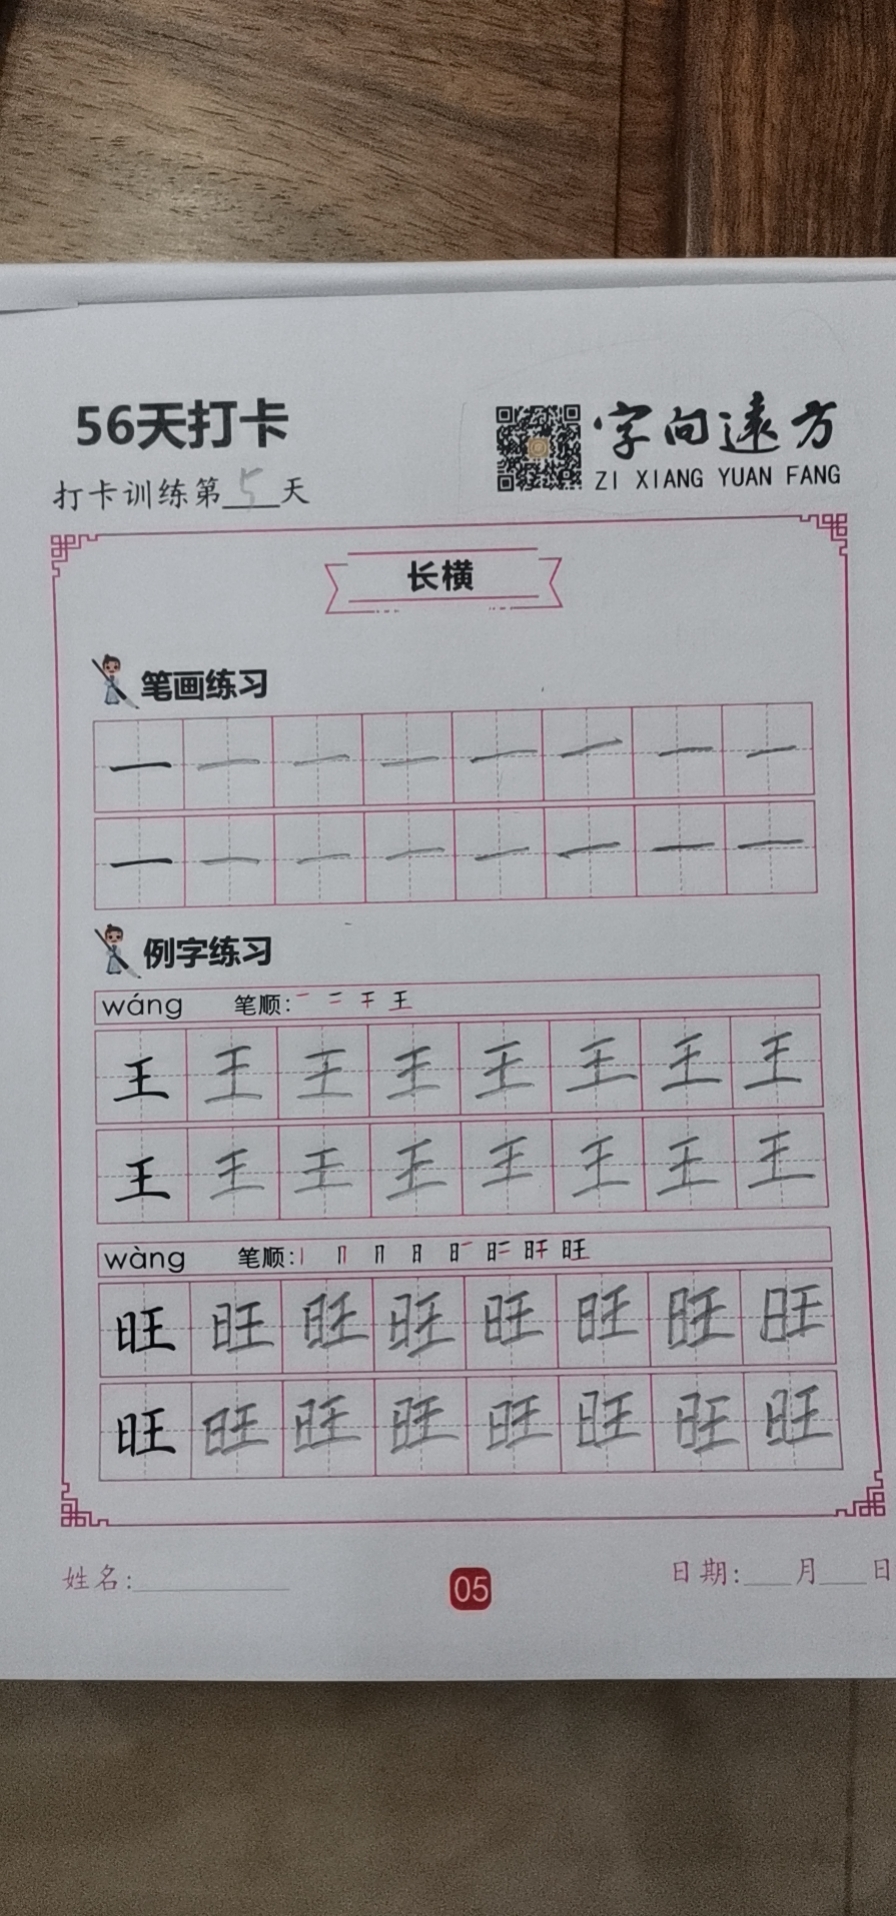 56天打卡
字向远方
ZI XIANG YUAN FANG
打卡训练第5天
长横
笔画练习
一 一 一 一 一 一 一 一
一 一 一 一 一 一 一 一
例字练习
wáng 笔顺: 王
王 王 王 王 王 王 王 王
王 王 王 王 王 王 王 王
wàng 笔顺: 旺
旺 旺 旺 旺 旺 旺 旺 旺
旺 旺 旺 旺 旺 旺 旺 旺
姓名: 05 日期: 月 日